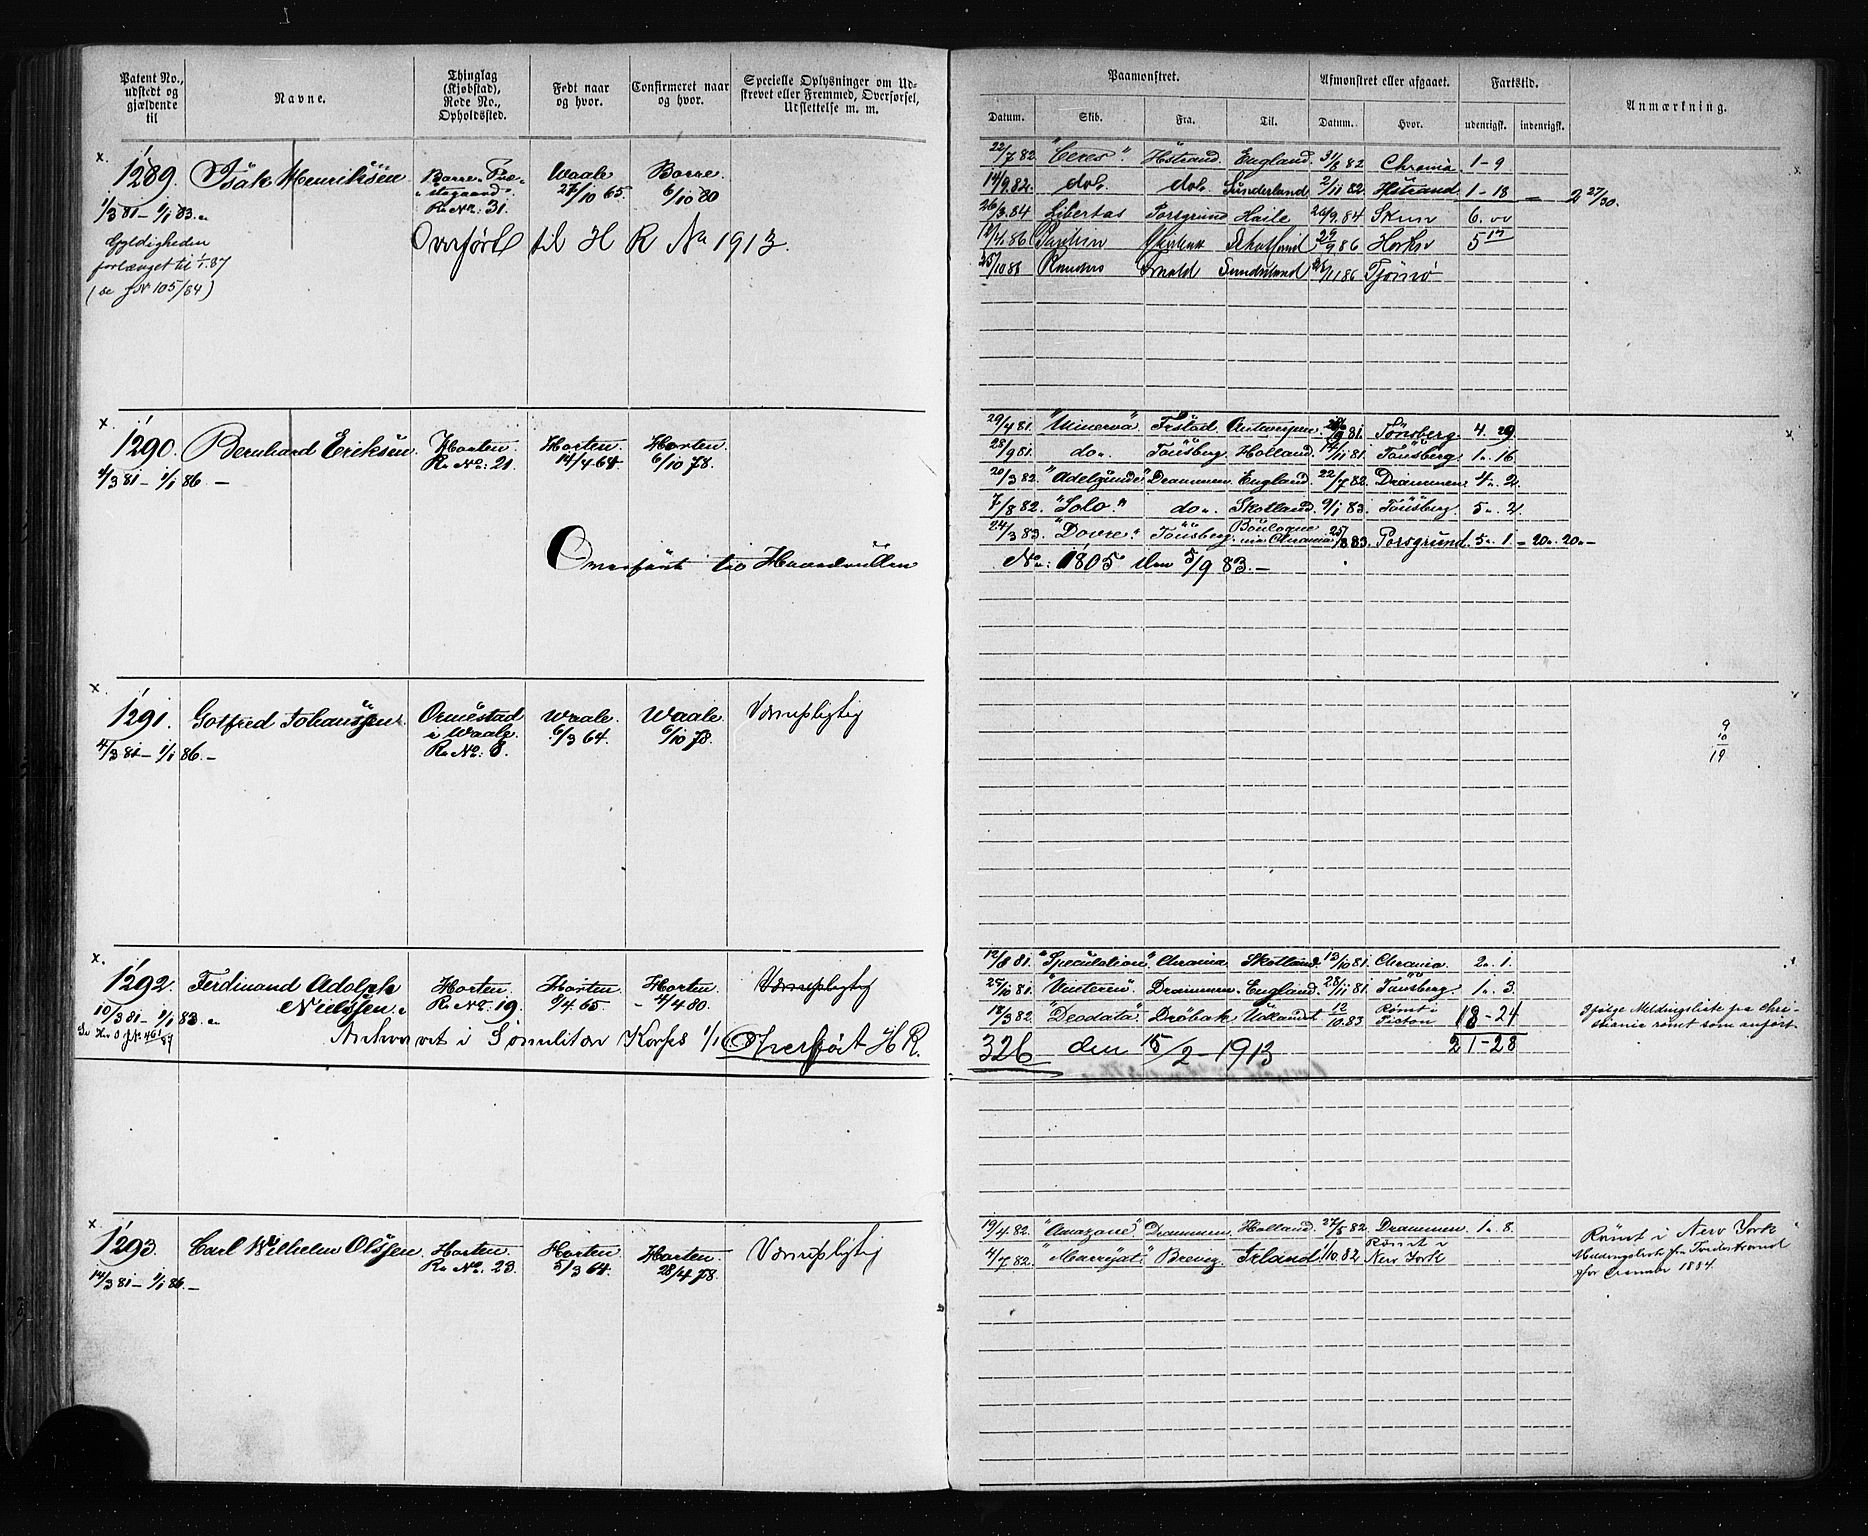 Patent No., udstedt og gjældende til
Navne.
Thinglag (Kjøbstad), Rode No., Opholdssted.
Født naar og hvor.
Confirmeret naar og hvor.
Specielle Oplysninger om Udskrevet eller Fremmed, Overførsel, Udslettelse m. m.
Paamønstret.
Afmønstret eller afgaaet.
Fartstid.
Anmærkning.
Datum. Skib. Fra. Til. Datum. Hvor. udenrigsk. indenrigsk.
1289. Isak Henriksen Borre Præ- Waale Borre
stegaard 27/10 65. 6/10 80
1/3 81 – 1/1 83. R. No: 31.
Gyldigheden
forlænget til 1/1 87
(se JN 105/84)
Overført til H R No 1913.
22/7 82. "Ceres". Hstrand. England. 31/8 82 Chrania. 1 - 9
14/9 82. do. do. Sunderland 2/11 82. Hstrand. 1 - 18 — 2 27/30.
26/3 84 Libertas Porsgrund 26/9 84 6.
86 86 5
25/10 86 Randers Sunderland 11 86 Tjømø
1290. Bernhard Eriksen Horten. Horten. Horten
4/3 81 – 1/1 86. – R. No: 21. 14/4 64. 6/10 78.
Overført til Hovedrullen
29/4 81. "Minerva" Frstad Antwerpen 9 81. Tönsberg. 4. 29.
28/9 81. do. Tönsberg. Holland. 14/11 81. Tönsberg. 1. 16.
20/3 82. "Adelgunde" Drammen. England. 22/7 82. Drammen. 4. 2.
7/8 82. "Solo" do. Skotland. 9/1 83. Tönsberg. 5. 2.
24/3 83. "Dovre" Tönsberg. Boulogne
via Chrania 25/8 83. Porsgrund. 5. 1. – 20. 20. –
No: 1805 den 5/9 83. –
1291. Gotfred Johanssen Ormestad Waale. Waale. Værnepligtig
i Waale. 6/3 64. 6/10 78.
4/3 81 – 1/1 86. – R. No: 8.
9
10
19
1292. Ferdinand Adolph Horten. Horten. Horten Værnepligtig
Nielssen. R. No: 19. 9/4 65. 4/4 80.
10/3 81 – 1/1 83.
i Sømilitær Korps Overført H R.
12/8 81. "Speculation". Chrania. Skotland. 13/10 81. Chrania. 2. 1.
27/10 81. Drammen. England. 28/11 81. Tönsberg. 1. 3.
18/3 82. "Deodata" Dröbak Udlandet 12/10 83 Rømt i
Picton 18 - 24
Ifølge Meldingsliste fra Chri-
stiania rømt som anført
326 den 15/2 - 1913 21 - 28
1293. Carl Wilhelm Olssen. Horten. Horten. Horten. Værnepligtig
R. No: 23. 5/3 64. 28/4 78.
14/3 81 – 1/1 86. –
19/4 82. "Amazone" Drammen. Holland. 27/5 82. Drammen. 1. 8.
4/7 82. "Marryat" Brevig. Irland. 1/10 82. Rømt i
New York
Rømt i New York
Meldingsliste fra
for 1884.